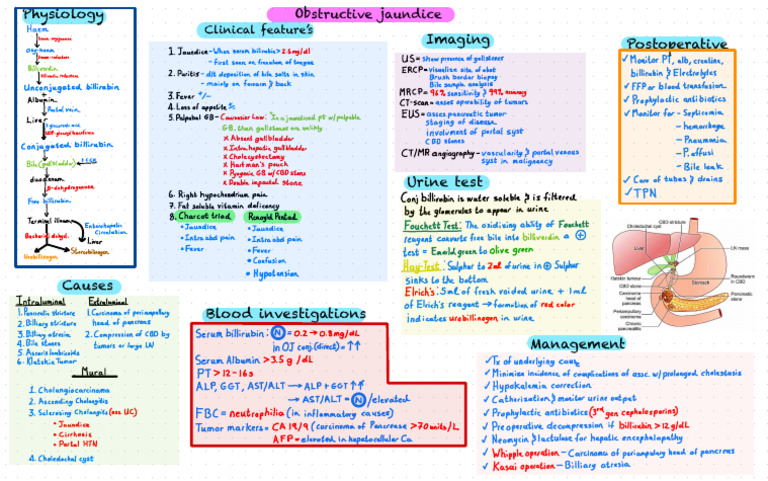 Obstructive jaundice
Physiology
Haem
Biliverdin
Unconjugated billirubin
Albumin
Portal vein
Liver
Conjugated billirubin
Bile (gallbladder)
duodenum
Free billirubin
Terminal ileum
Enterohepatic
Circulation
Liver
Urobilinogen
Stercobilinogen
Clinical feature's
1. Jaundice - When serum bilirubin > 2.5mg/dl
- first seen on frenulum of tongue
2. Puritis - d/t deposition of bile salts in skin
- mainly on forearm & back
3. Fever +/-
4. Loss of appetite
5. Palpabal GB - Courvoisier Law: In a jaundiced pt w/ palpable
GB, then gallstones are unlikely
x Absent gallbladder
x Intrahepatic gallbladder
x Cholecystectomy
x Hartman's pouch
x Pyogenic GB w/ CBD stones
x Double impactal stone
6. Right hypochondrium pain
7. Fat soluble vitamin deficency
8. Charcot triad
• Jaundice
• Intra abd pain
• Fever
Renolyd Pentad
• Jaundice
• Intra abd pain
• Fever
• Confusion
• Hypotension
Imaging
US = show presence of gallstones
ERCP = visualize site of obst
Brush border biopsy
Bile sample analysis
MRCP = 96% sensitivity & 99% accuracy
CT-scan = asses operability of tumors
EUS = asses pancreatic tumor
staging of disease
involvement of portal syst
CBD stones
CT/MR angiography - vascularity & portal venous
syst in malignancy
Postoperative
✓ Monitor PT, alb, creatine,
billirubin & Electrolytes
✓ FFP or blood transfusion
✓ Prophylactic antibiotics
✓ Monitor for - Septicemia
- hemorrhage
- Pneumonia
- P. effusi
- Bile leak
✓ Care of tubes & drains
✓ TPN
Urine test
Conj billirubin is water soluble & is filtered
by the glomerulus to appear in urine
Fouchett Test: The oxidising ability of Fouchett
reagent converts free bile into biliverdin a ⊕
test = Emerald green to olive green
Hay Test: Sulphur to 2ml of urine in ⊕ Sulphur
sinks to the bottom
Elrich's: 5ml of fresh voided urine + 1ml
of Elrich's reagent → formation of red color
indicates urebilinogen in urine
CBD stricture
Cholechodal cyst
Liver
LN mass
Klatskin tumour
CBD stone
Carcinoma
head of
pancreas
Periampullary
carcinoma
Chronic
pancreatitis
Stomach
Roundworm
in CBD
Pancreatic
stone
Causes
Intraluminal
1. Pancreatic stricture
2. Billiary stricture
3. Billiary atresia
4. Bile stones
5. Ascaris lumbricoids
6. Klatskin Tumor
Extraluminal
1. Carcinoma of periampullary
head of pancreas
2. Compression of CBD by
tumors or large LN
Mural
1. Cholangiocarcinoma
2. Ascending Cholangitis
3. Sclerosing Cholangitis (ass. UC)
• Jaundice
• Cirrhosis
• Portal HTN
4. Choledochal cyst
Blood investigations
Serum billirubin: Ⓝ = 0.2 → 0.8mg/dL
in OJ conj.(direct) = ↑↑
Serum Albumin > 3.5 g/dL
PT > 12-16s
ALP, GGT, AST/ALT → ALP + GGT ↑↑
→ AST/ALT = Ⓝ/elevated
FBC = neutrophilia (in inflammatory causes)
Tumor markers = CA 19/9 (carcinoma of Pancrease > 70units/L
AFP = elevated in hepatocellular Ca
Management
✓ Tx of underlying cause
✓ Minimize incidence of complications of assc. w/ prolonged cholestasis
✓ Hypokalemia correction
✓ Catherization & monitor urine output
✓ Prophylactic antibiotics (3rd gen cephalosporins)
✓ Pre operative decompression if billirubin > 12g/dL
✓ Neomycin & lactulose for hepatic encephalopathy
✓ Whipple operation - Carcinoma of periampullary head of pancreas
✓ Kasai operation - Billiary atresia